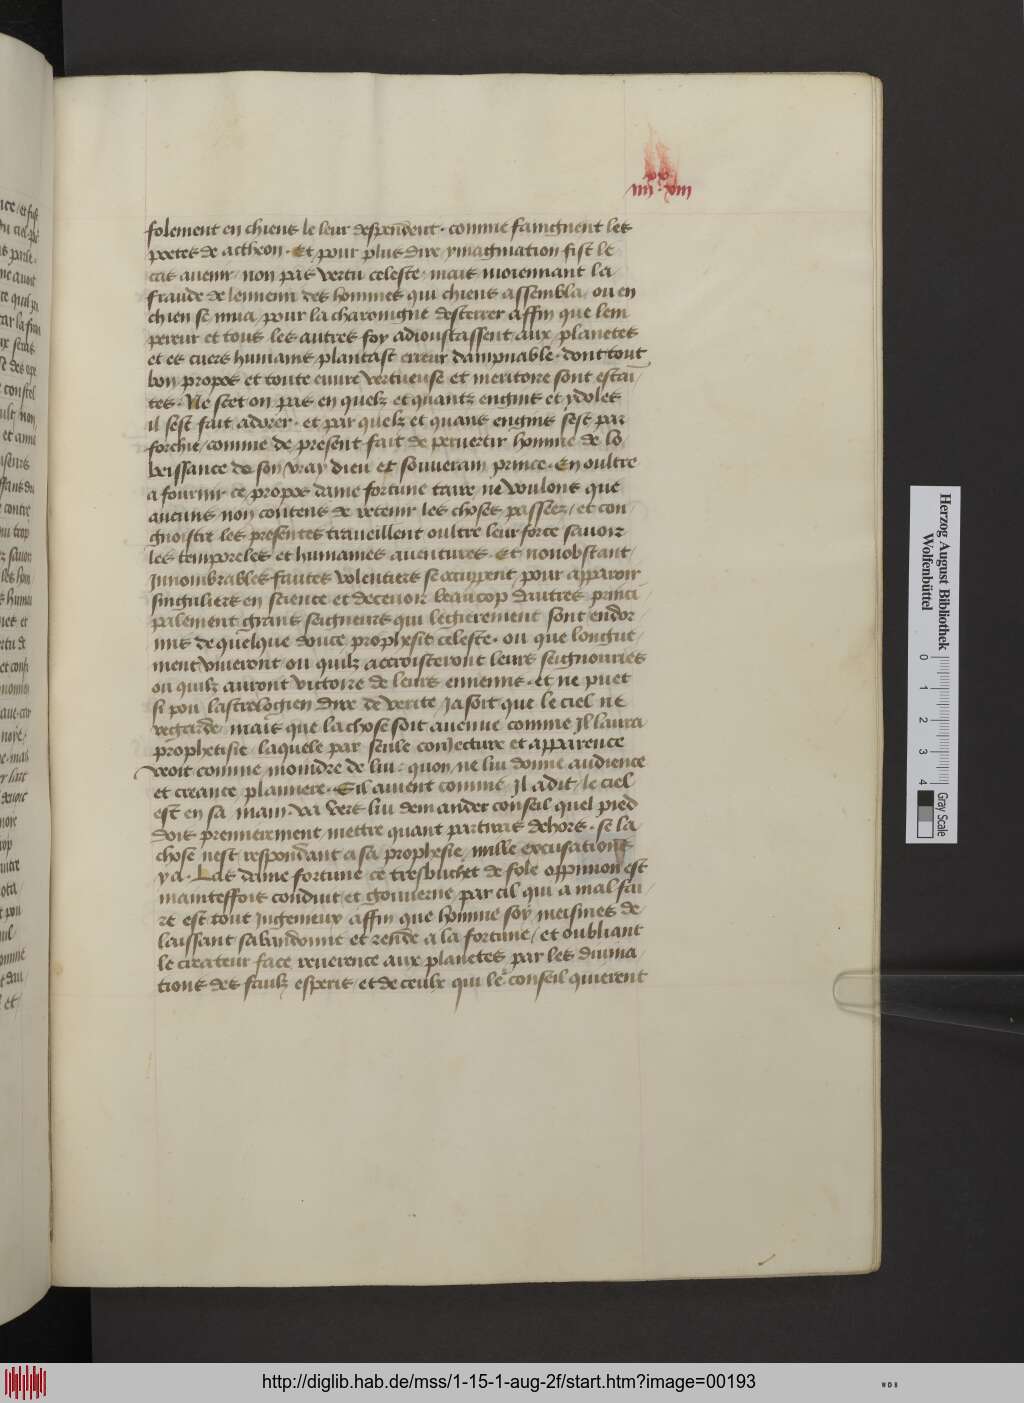 iiii·xviii
folement en chiens le leur despendent · comme faingnent les
poetes de actheon · Et pour plus dire ymagination fist le
cas auenir / non pas vertu celeste / mais moiennant la
fraude de lennemi des hommes qui chiens assembla / ou en
chien se mua / pour la charoingne desterrer affin que lem
pereur et tous les autres foy adioustassent aux planetes
et es cuers humains plantast erreur dampnable · dont tout
bon propos et toute euure vertueuse et meritoire sont estai
tes · Ne scet on pas en quelz et quantz engins et ydoles
il sest fait adorer · et par quelz et quans engins sest par
forchie / comme de present fait de peruertir homme de lo
beissance de son vray dieu et souuerain prince · En oultre
a fournir ce propos dame fortune taire ne voulons que
aucuns non contens de retenir les choses passees / et con
gnoistre les presentes traueillent oultre leur force sauoir
les temporeles et humaines auentures · Et nonobstant
Innombrables fautes volentiers se occupent pour apparoir
singuliers en science et deceuoir beaucop dautres princi
palement grans seigneurs qui legierement sont endor
mis de quelque douce prophesie celeste · ou que longue
ment viueront ou quilz accroisteront leurs seignouries
ou quilz auront victoire de leurs ennemis · et ne puet
si pou lastrologien dire de verite Ja soit que le ciel ne
regarde / mais que la chose soit auenue comme Il laura
prophetisie / laquele par seule coniecture et apparence
veoit comme moindre de lui · quon ne lui donne audience
et creance planiere · Sil auient comme Il a dit / le ciel
est en sa main · va vers lui demander conseil quel pied
dois premierement mettre quant partiras dehors · se la
chose nest respondant a sa prophesie / mille excusations
y a · Las dame fortune ce tresbuchet de fole oppinion est
mainteffois conduit et gouuerne par cil qui a mal fai
re est tout Ingenieux / affin que homme soy meismes de
laissant sabandonne et rende a la fortune / et oubliant
le createur face reuerence aux planetes par les diuina
tions des faulz esperis / et de ceulx qui le conseil quierent
Herzog August Bibliothek
Wolfenbüttel
0 1 2 3 4
Gray Scale
http://diglib.hab.de/mss/1-15-1-aug-2f/start.htm?image=00193